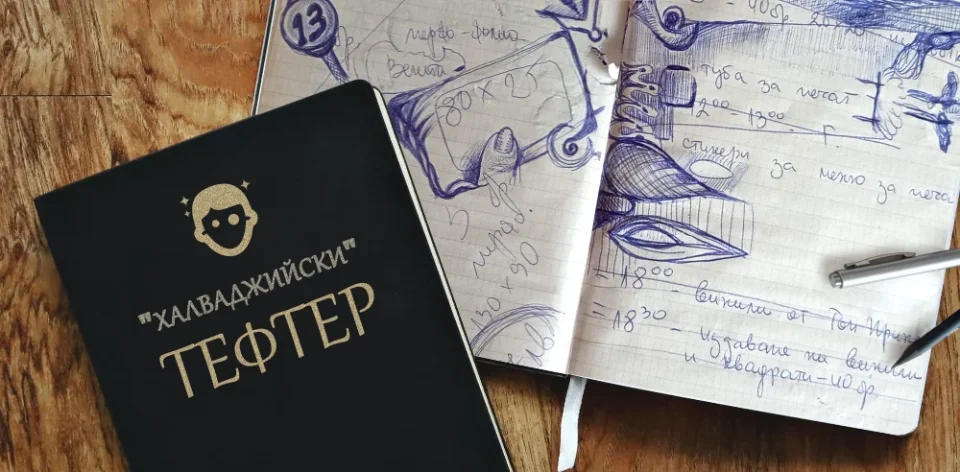 "ХАЛВАДЖИЙСКИ"
ТЕФТЕР
13
перфо-фолио
Велита
80 x 25
5 бр
130 + 90
40 бр. 20
туба за печат
12⁰⁰-13⁰⁰ г.
стикери за меню за печа
- 18⁰⁰ - винили от Топ Принт
= 18³⁰ - издаване на винили
и квадрати - 40 бр.